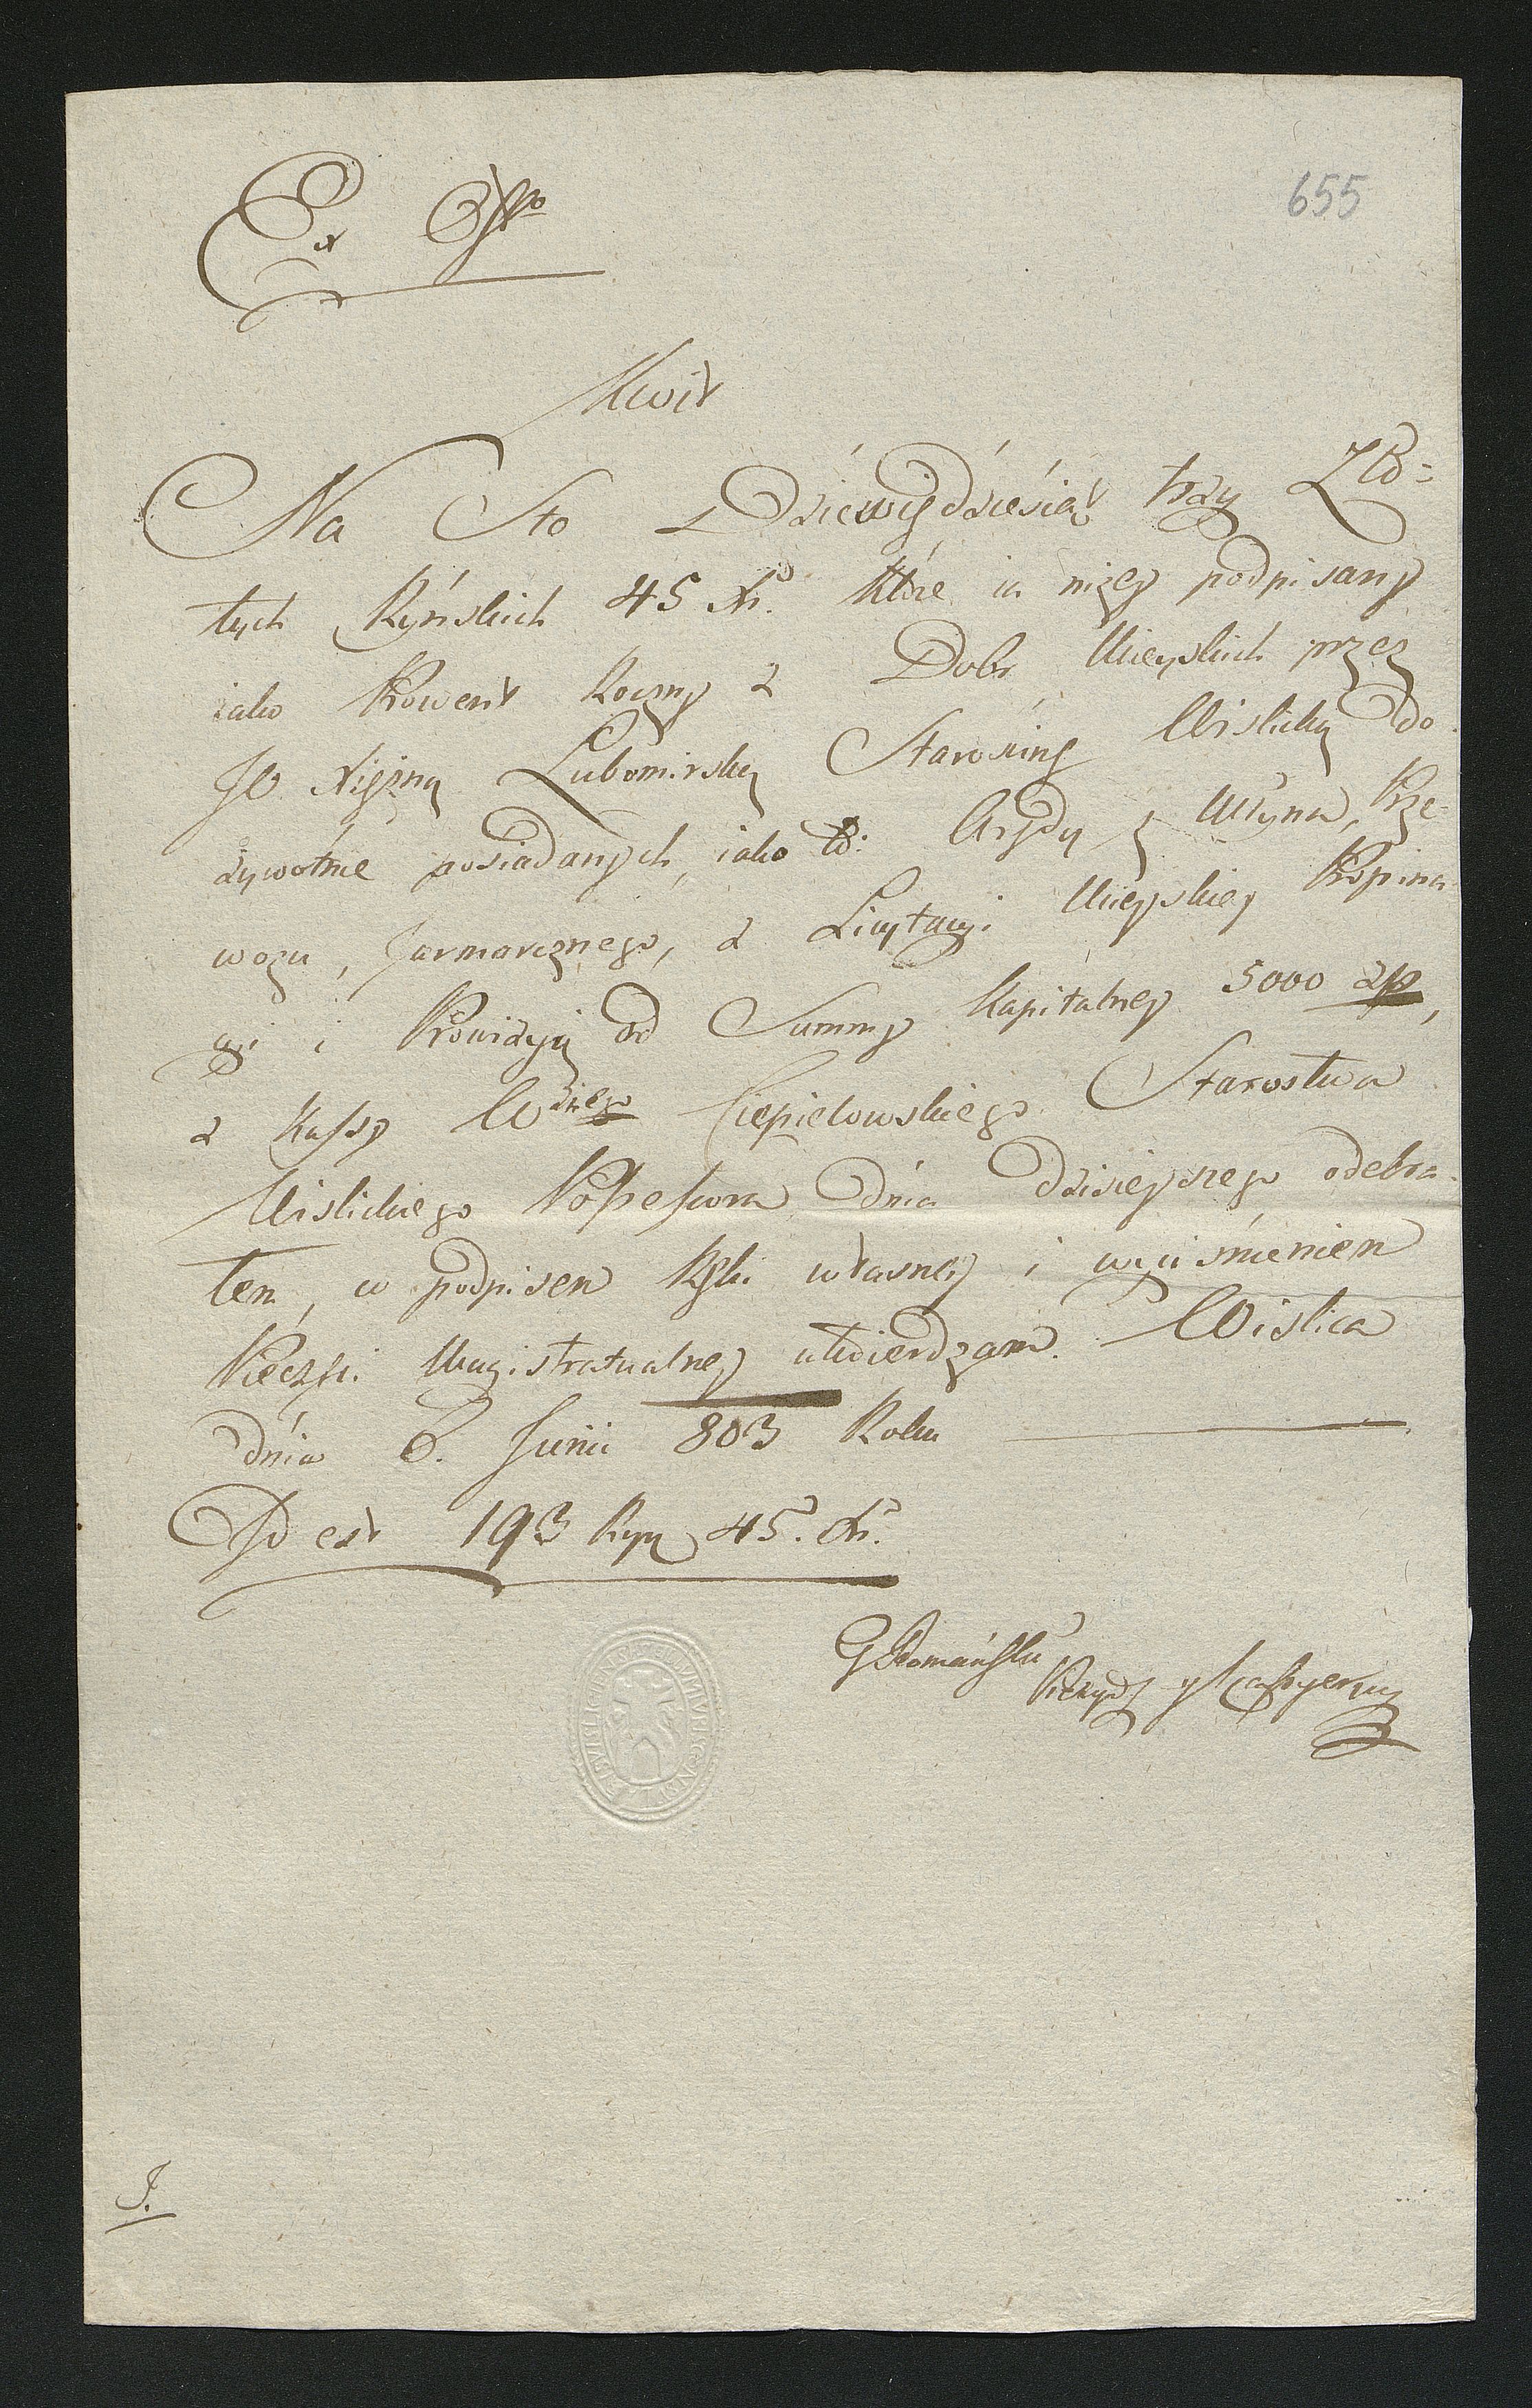 655
Ex Offo
Kwit
Na Sto Dziewiędziesiąt trzy Zło=
tych Ryńskich 45 Xr. które ia niżey podpisany
iako Prowent Roczny z Dobr Mieyskich przez
JO Xiężnę Lubomirską Starościnę Wislicką do
żywotnie posiadanych, iako to: Arędy z Młyna, Prze=
wozu, Jarmarcznego, z Licytacyi Mieyskiey Propina
cyi i Prowizyią od Summy Kapitalney 5000 zp,
z Kassy Wżnego Ciepielowskiego Starostwa
Wislickiego Possessora dnia dzisieyszego odebra
łem, w podpisem Ręki własney i wyciśnieniem
Pieczęci Magistratualney utwierdzam. Wislica
dnia 6. Junii 803 Roku
Id est 193 Ryń 45. Xr.
Prezyd y Kassyer
J.